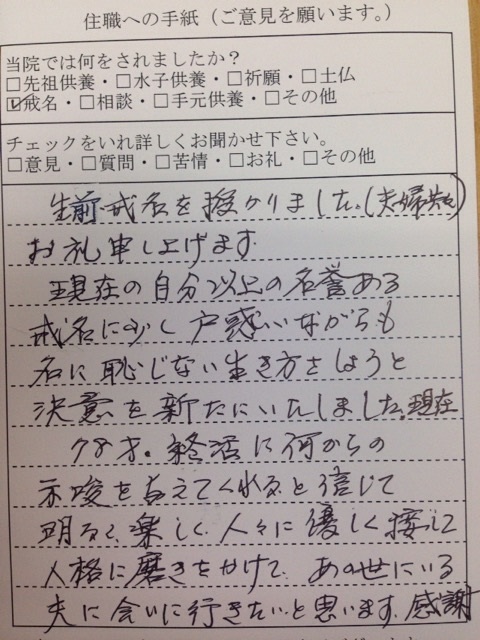 住職への手紙（ご意見を願います。）
当院では何をされましたか？
□先祖供養・□水子供養・□祈願・□土仏
☑戒名・□相談・□手元供養・□その他
チェックをいれ詳しくお聞かせ下さい。
□意見・□質問・□苦情・□お礼・□その他
生前戒名を授かりました。(夫婦共を)
お礼申し上げます
現在の自分以上の名誉ある
戒名に少し戸惑いながらも
名に恥じない生き方をしようと
決意を新たにいたしました。現在
78才。終活に何からの
示唆を与えてくれると信じて
明るく、楽しく、人々に優しく接して
人格に磨きをかけて、あの世にいる
夫に会いに行きたいと思います。感謝